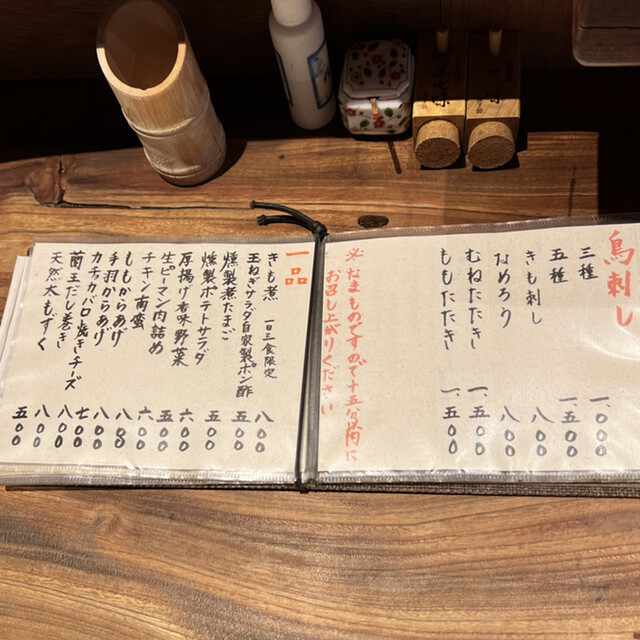 鳥刺し
三種 一、〇〇〇
五種 一、五〇〇
きも刺し 八〇〇
なめろう 八〇〇
むねたたき 一、五〇〇
ももたたき 一、五〇〇
※なまものですので十五分以内に
お召し上がりください
一品
きも煮 一日三食限定 八〇〇
玉ねぎサラダ自家製ポン酢 五〇〇
燻製煮たまご 五〇〇
燻製ポテトサラダ 六〇〇
厚揚げ香味野菜 五〇〇
生ピーマン肉詰め 六〇〇
チキン南蛮 八〇〇
ももからあげ 八〇〇
手羽からあげ 七〇〇
カチョカバロ焼きチーズ 八〇〇
蘭王だし巻き 八〇〇
天然太もずく 五〇〇